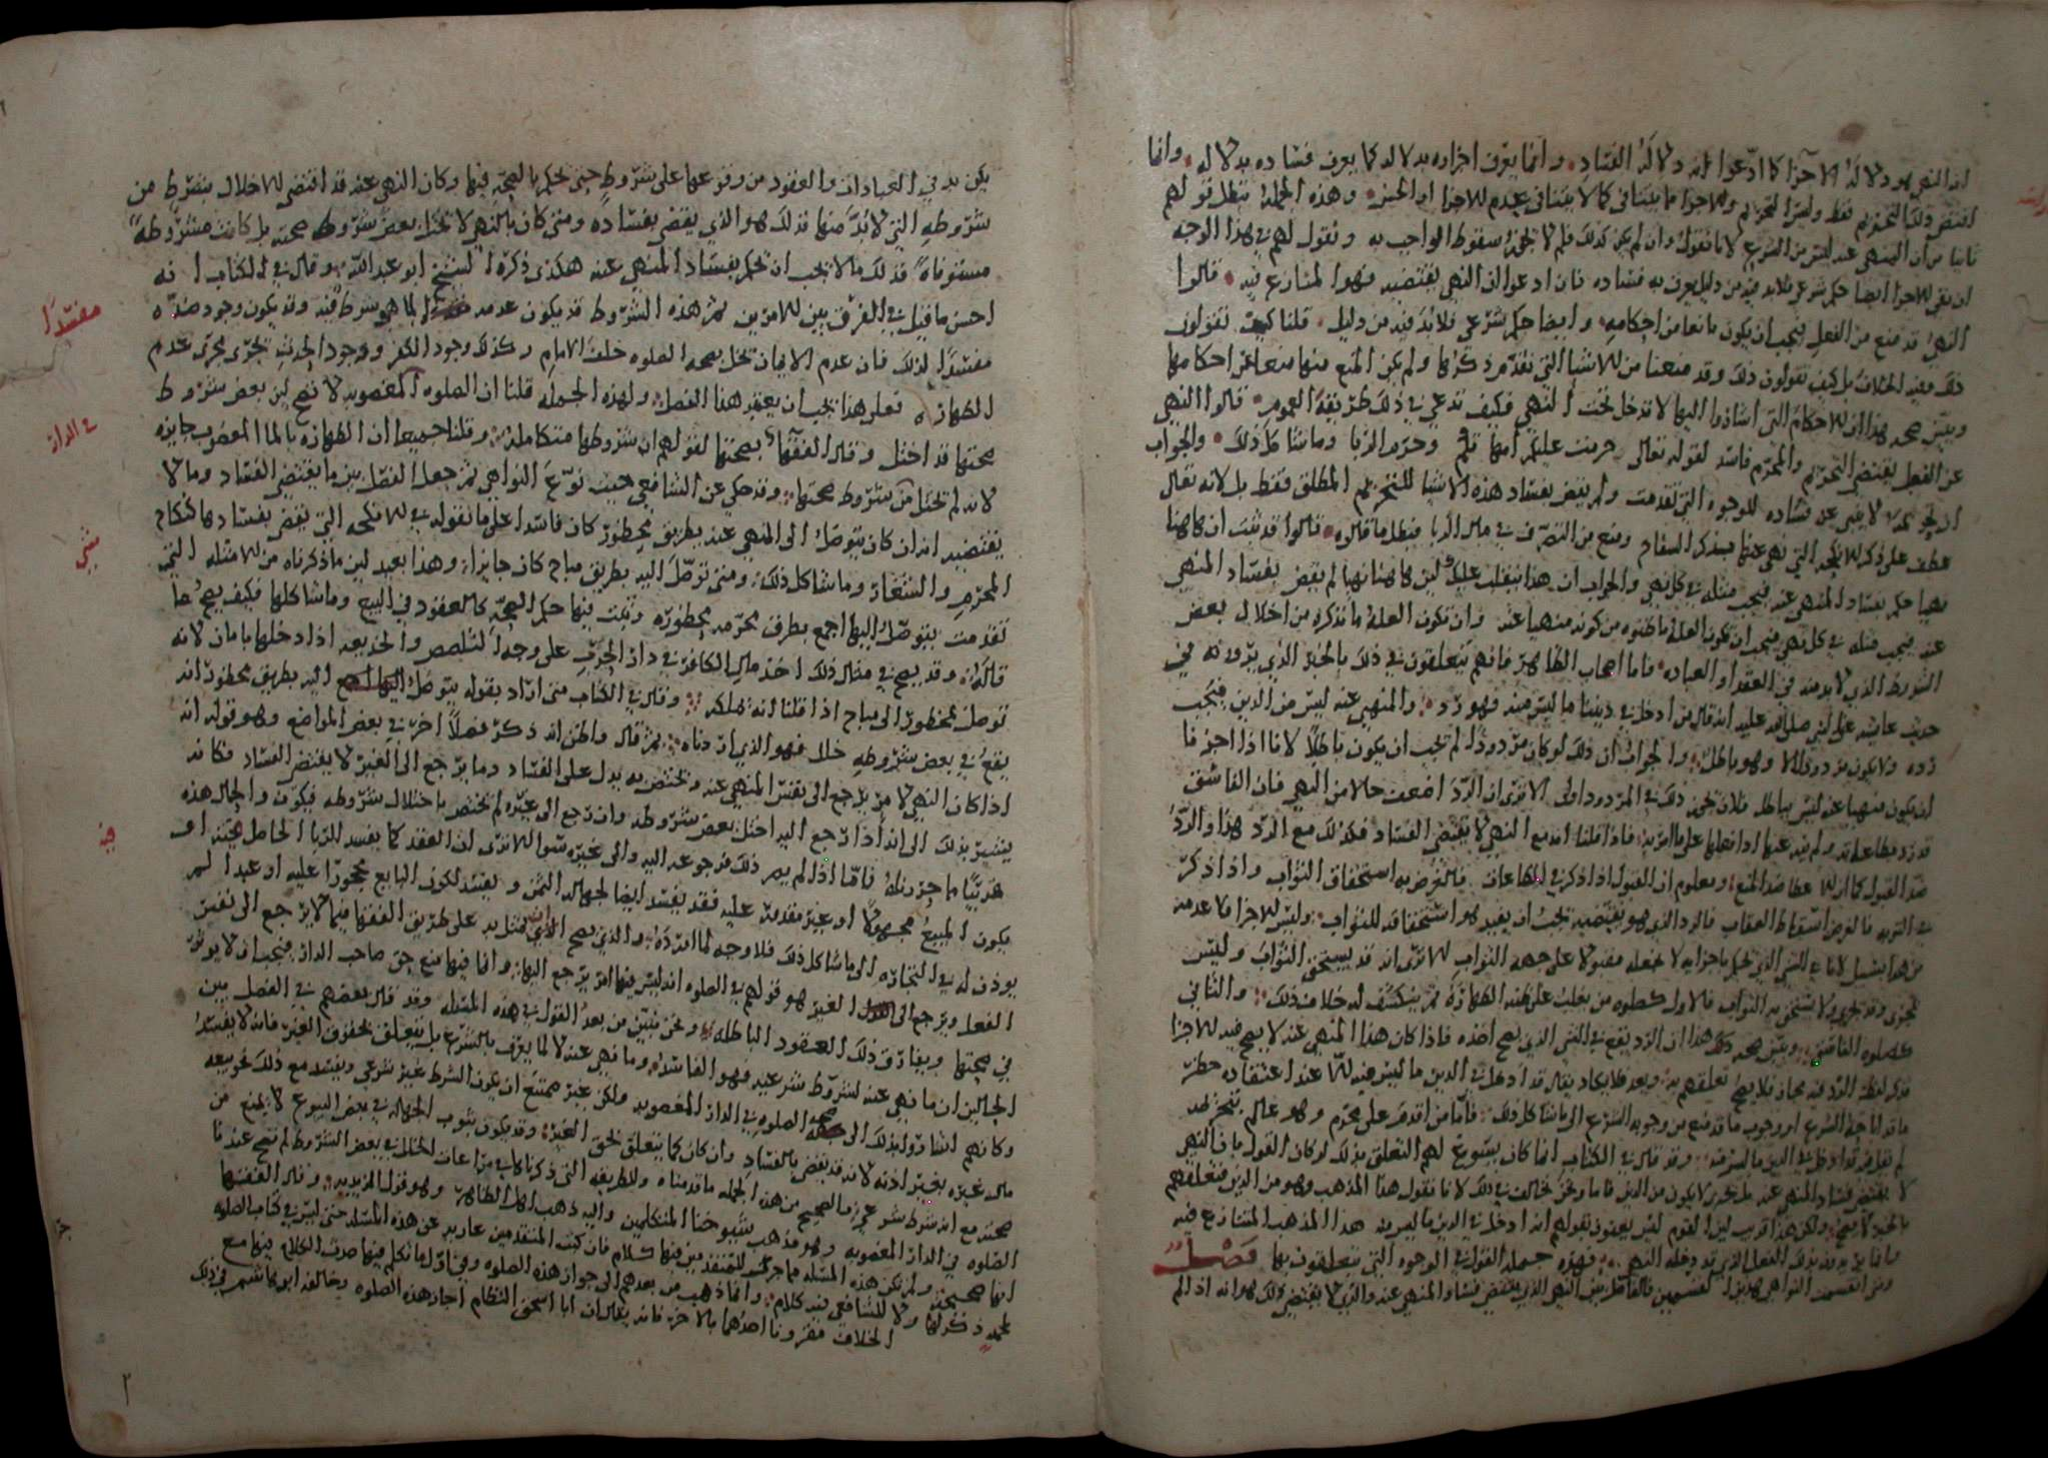 ان النهي هو دلاله الاجزا كما ادّعوا انه دلاله الفساد وانما يعرف اجزاوه بدلاله كما يعرف فساده بدلاله وانما
اقتضى ذلك التحريم فقط وليس التحريم والاجزا ما يتنافى كما لا يتنافى عدم الاجزا او الحسن وهذه الجمله تبطل قولهم
ثانيا من ان المنهي عنه ليس من الشرع لانا نقول وان لم يكن كذلك فلم لا يجوز سقوط الواجب به ونقول لهم في هذا الوجه
ان نفي الاجزا ايضا حكم شرعي فلا بد فيه من دليل يعرف به فساده فان ادعوا ان النهي يقتضيه فهو المتنازع فيه قالوا
النهي قد منع من الفعل فيجب ان يكون مانعا من احكامه وايضا حكم شرعي فلا بد فيه من دليل قلنا كيف تقولون
ذلك مع الخلاف بل كيف تقولون ذلك وقد منعنا من الاشيا التي تقدم ذكرها ولم يكن المنع منها منعا من احكامها
ويبين صحه هذا ان الاحكام التي اشاروا اليها لا تدخل تحت النهي فكيف تدعي في ذلك طريقة العموم قالوا النهي
عن الفعل يقتضي التحريم والمحرم فاسد لقوله تعالى حرمت عليكم امهاتكم وحرم الربا وما شاكل ذلك والجواب
ان التحريم لا يبنى عن فساده للوجوه التي تقدمت ولم يقض بفساد هذه الاشيا للتحريم المطلق فقط بل لانه تعالى
عطف على ذكر الانكحه التي نهى عنها بذكر السفاح ومنع من التصرف في مال الربا فبطل ما قالوه قالوا قد ثبت ان هاهنا
نهيا حكم بفساد المنهي عنه فيجب مثله في كل نهي والجواب ان هذا ينقلب عليك لان هاهنا نهيا لم يقض بفساد المنهي
عنه فيجب مثله في كل نهي فيجب ان تكون العله ما ظنوه من كونه منهيا عنه وان تكون العله ما نذكره من اخلال بعض
الشروط الذي لا بد منه في العقد او العباده فاما اصحاب الظاهر فانهم يتعلقون في ذلك بالخبر الذي يروونه من
حديث عايشه عن النبي صلى الله عليه انه قال من ادخل في ديننا ما ليس منه فهو رد والمنهي عنه ليس من الدين فيجب
رده ولا يكون مردودا الا وهو باطل والجواب ان ذلك لو كان مردودًا لم يجب ان يكون باطلًا لانا اذا اجزنا
ان يكون منهيا عنه ليس بباطل فلان نجيز ذلك في المردود اولى الا ترى ان الردّ اضعف حالا من النهي فان الفاسق
قد ترد طاعاته ولم ينه عنها اذا فعلها على ما امر به فاذا قلنا انه مع النهي لا يقتضي الفساد فكذلك مع الرد هذا والردّ
ضد القبول كما ان الاعطا ضد المنع ومعلوم ان القبول اذا ذكر في الطاعات فالغرض به استحقاق الثواب واذا ذكر
في التوبه فالغرض اسقاط العقاب فالرد الذي هو نقيضه يجب ان يفيد هو استحقاقه للثواب وليس الاجزا فاعد منه
من هذا بسبيل لانا في الشي الذي نحكم باجزايه لا نجعله مقبولا على جهه الثواب الا ترى انه قد يستحق الثواب وليس
يجزي وقد يجزي ولا يستحق به الثواب فالاول كصلوه من يغلب على ظنه الطهارة ثم ينكشف له خلاف ذلك والثاني
كصلوه الفاسق ويبين صحه ذلك هذا ان الرد يقع في الشي الذي يصح اخذه فاذا كان هذا المنهي عنه لا يصح فيه الاجزا
فذكر لفظة الرد فيه مجاز فلا يصح تعلقهم به وبعد فلا يكاد يقال قد ادخل في الدين ما ليس منه الا عند اعتقاده حظر
ما قد اباحه الشرع او وجوب ما قد منع من وجوبه الشرع الى ما شاكل ذلك فاما من اقدم على محرم وهو عالم بتحريمه
لم نقل فيه قد ادخل في الدين ما ليس منه وقد قال في الكتاب انما كان يسوغ لهم التعلق بذلك لو كان القول بان النهي
لا يقتضي فساد المنهي عنه مما يجوز الا يكون من الدين فاما ونحن نخالف في ذلك لانا نقول هذا المذهب وهو من الدين فتعلقهم
بالخبر لا يصح ولكن هذا قريب لان القوم ليس يعنون بقولهم انه ادخل في الدين ما ليس منه هذا المذهب المتنازع فيه
وانما يريدون بذلك الفعل الذي قد دخله النهي فهذه جمله القول في الوجوه التي يتعلقون بها فصل
ومن انقسمت النواهي هذين القسمين فالفاصل بين النهي الذي يقتضي فساد المنهي عنه والذي لا يقتضي ذلك هو انه اذا لم
يكن بد في العبادات والعقود من وقوعها على شروط حتى نحكم بالصحة فيها وكان النهي عنه قد اقتضى الاخلال بشرط من
شروطه التي لا بدّ منها فذلك هو الذي يقضى بفساده ومتى كان بالنهي لا يختل بعض شروط صحته بل كانت مشروطة
مستوفاة فذلك ما لا يجب ان نحكم بفساد المنهي عنه هكذى ذكره الشيخ ابو عبد الله وقال في الكتاب انه
احسن ما قيل في الفرق بين الامرين ثم هذه الشروط قد يكون عدمه مخلا لما هو شرط فيه وقد يكون وجود ضده
مفسدًا لذلك فان عدم الايمان يخل بصحه الصلوه خلف الامام وكذلك وجود الكفر ووجود الحدث يجري مجرى عدم
الطهارة فعلى هذا يجب ان يعقد هذا الفصل ولهذه الجمله قلنا ان الصلوه المغصوبه لا تصح لان بعض شروط
صحتها قد اختل وقال الفقها بصحتها لقولهم ان شروطها متكاملة وقلنا جميعا ان الطهاره بالما المغصوب جايزه
لانه لم يختل من شروط صحتها وقد حكي عن الشافعي حيث نوّع النواهي ثم جعل الفصل بين ما يقتضي الفساد وما لا
يقتضيه انه ان كان يتوصل الى المنهي عنه بطريق محظور كان فاسدا على ما نقوله في الانكحه التي يقضى بفسادها كنكاح
المحرم والشغار وما شاكل ذلك ومتى توصّل اليه بطريق مباح كان جايزا وهذا بعيد لان ما ذكرناه من الامثله التي
تقدمت يتوصل اليها اجمع بطرق محرمه محظوره وثبت فيها حكم الصحة كالعقود في البيع وما شاكلها فكيف يصح ما
قاله وقد يصح في مثال ذلك اخذ مال الكافر في دار الحرب على وجه التلصص والخديعه اذا دخلها بامان لانه
توصل بمحظور الى مباح اذا قلنا انه تملكه وقال في الكتاب متى اراد بقوله يتوصل اليه بطريق محظور انه
يقع في بعض شروطه خلل فهو الذي اردناه ثم قال واظن انه ذكر فصلًا اخر في بعض المواضع وهو قوله انه
اذا كان النهي لامر يرجع الى نفس المنهي عنه ويختص به يدل على الفساد وما يرجع الى الغير لا يقتضي الفساد فكانه
يشير بذلك الى انه اذا رجع اليه اختل بعض شروطه وان رجع الى غيره لم يختص باختلال شروطه فيكون والحال هذه
قريبًا مما جوزناه فامّا اذا لم يرد ذلك فرجوعه اليه والى غيره سوا الا ترى ان العقد كما يفسد للربا الحاصل فيه او
يكون المبيع مجهولًا او غير مقدور عليه فقد يفسد ايضا لجهاله الثمن ويفسد لكون البايع محجورا عليه او عبدا لم
يوذن له في التجاره الى ما شاكل ذلك فلا وجه لما اورده والذي يصح ان يمثل به على طريق الفقها فيما لا يرجع الى نفس
الفعل ويرجع الى الغير هو قولهم في الصلوه انه ليس فيها امر يرجع اليها وانما فيها منع حق صاحب الدار فيجب ان لا يوثر
في صحتها ويفارق ذلك العقود الباطله ونحن نبين من بعد القول في هذه المسئله وقد قال بعضهم في الفصل بين
الحالين ان ما نهي عنه لشروط شرعيه فهو الفاسد وما نهي عنه لا لما يعرف بالشرع بل يتعلق بحقوق الغير فانه لا يفسد
وكانهم اشاروا بذلك الى صحه الصلوه في الدار المغصوبه ولكن غير ممتنع ان يكون الشرط غير شرعي ويفسد مع ذلك نحو بيعه
مال غيره بغير اذنه لانه قد يقضى بالفساد وان كان كما يتعلق بحق الغير وقد يكون ثبوت الجهاله في بعض البيوع لا يمنع من
صحته مع انه شرط شرعي والصحيح من هذه الجمله ما قدمناه والطريقه التي ذكرناها في مراعات الخلل في بعض الشروط لم تصح عندنا
الصلوه في الدار المغصوبه وهو مذهب شيوخنا المتكلمين واليه ذهب اهل الظاهر وهو قول الزيديه وقال الفقها
انها صحيحه ولم تكن هذه المسئله مما جرى للمتقدمين فيها كلام فان كتب المتقدمين عاريه عن هذه المسئله حتى ليس في كتاب الصلوه
لمحمد ذكر لها ولا للشافعي فيه كلام وانما ذهب من بعدهم الى جواز هذه الصلوه وفي اول ما تكلم فيها حدث الخلاف فيها مع
الخلاف مقرونا احدهما بالاخر فانه يقال ان ابا اسحق النظام اجاز هذه الصلوه وخالفه ابو هاشم في ذلك
مفسدًا
في الدار
شي
فيه
٢